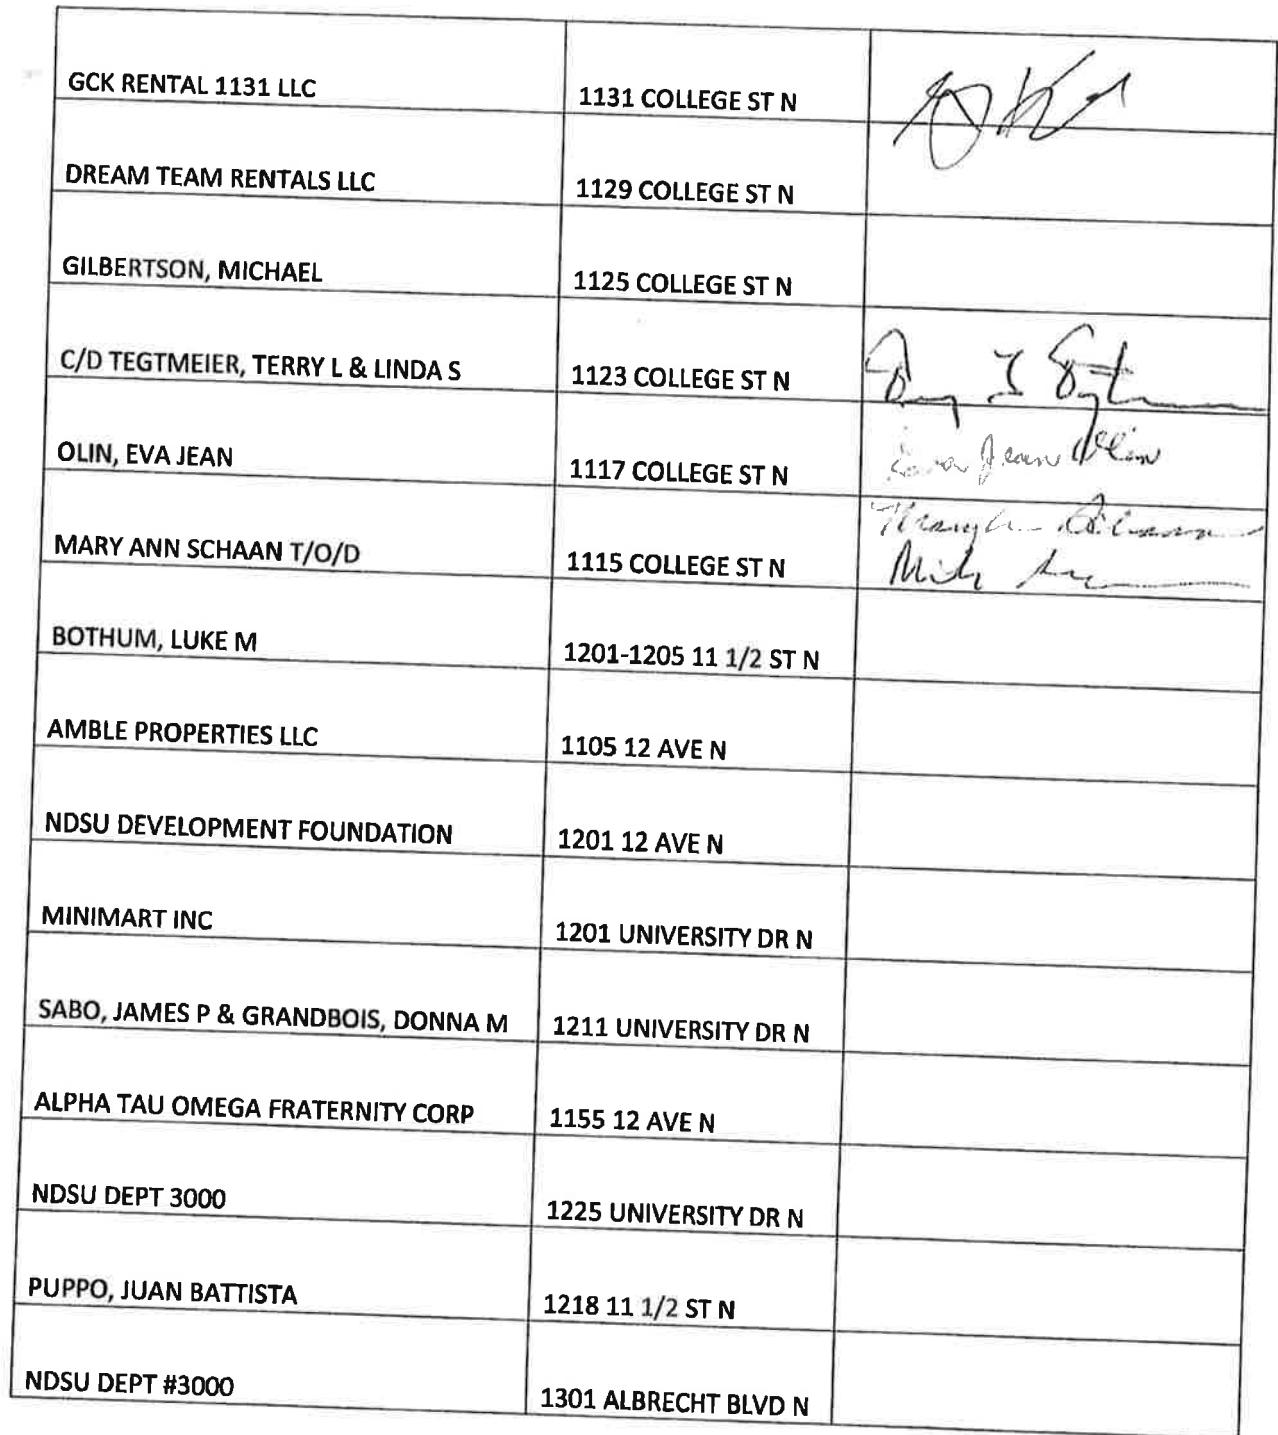 GCK RENTAL 1131 LLC 1131 COLLEGE ST N
DREAM TEAM RENTALS LLC 1129 COLLEGE ST N
GILBERTSON, MICHAEL 1125 COLLEGE ST N
C/D TEGTMEIER, TERRY L & LINDA S 1123 COLLEGE ST N
OLIN, EVA JEAN 1117 COLLEGE ST N Eva Jean Olin
MARY ANN SCHAAN T/O/D 1115 COLLEGE ST N
BOTHUM, LUKE M 1201-1205 11 1/2 ST N
AMBLE PROPERTIES LLC 1105 12 AVE N
NDSU DEVELOPMENT FOUNDATION 1201 12 AVE N
MINIMART INC 1201 UNIVERSITY DR N
SABO, JAMES P & GRANDBOIS, DONNA M 1211 UNIVERSITY DR N
ALPHA TAU OMEGA FRATERNITY CORP 1155 12 AVE N
NDSU DEPT 3000 1225 UNIVERSITY DR N
PUPPO, JUAN BATTISTA 1218 11 1/2 ST N
NDSU DEPT #3000 1301 ALBRECHT BLVD N